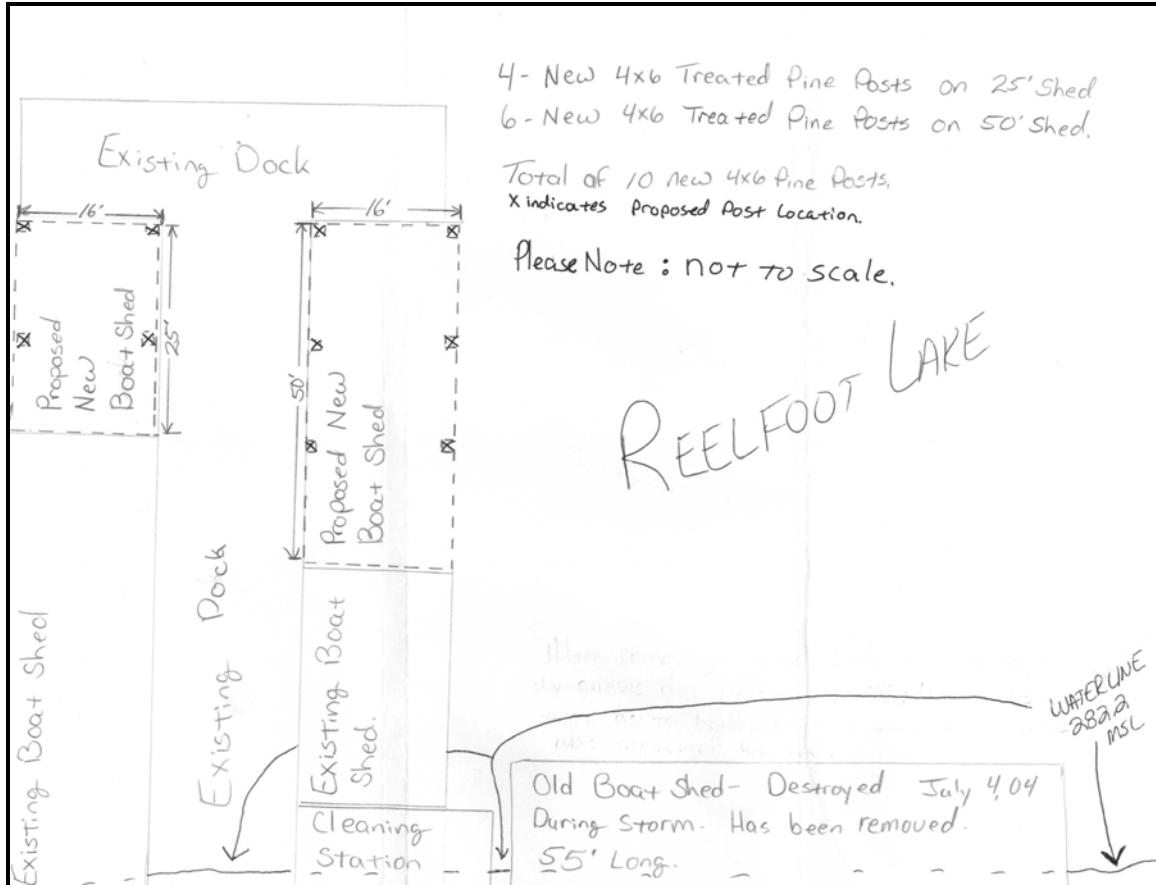 4- New 4x6 Treated Pine Posts on 25' Shed
6- New 4x6 Treated Pine Posts on 50' Shed.
Total of 10 new 4x6 Pine Posts.
X indicates Proposed Post Location.
Please Note: not to scale.
Existing Dock
16'
16'
25'
50'
Proposed
New
Boat Shed
Proposed New
Boat Shed
REELFOOT LAKE
Existing Boat Shed
Existing Dock
Existing Boat
Shed.
WATERLINE
282.2
MSL
Old Boat Shed- Destroyed July 4, 04
During Storm. Has been removed.
55' Long.
Cleaning
Station